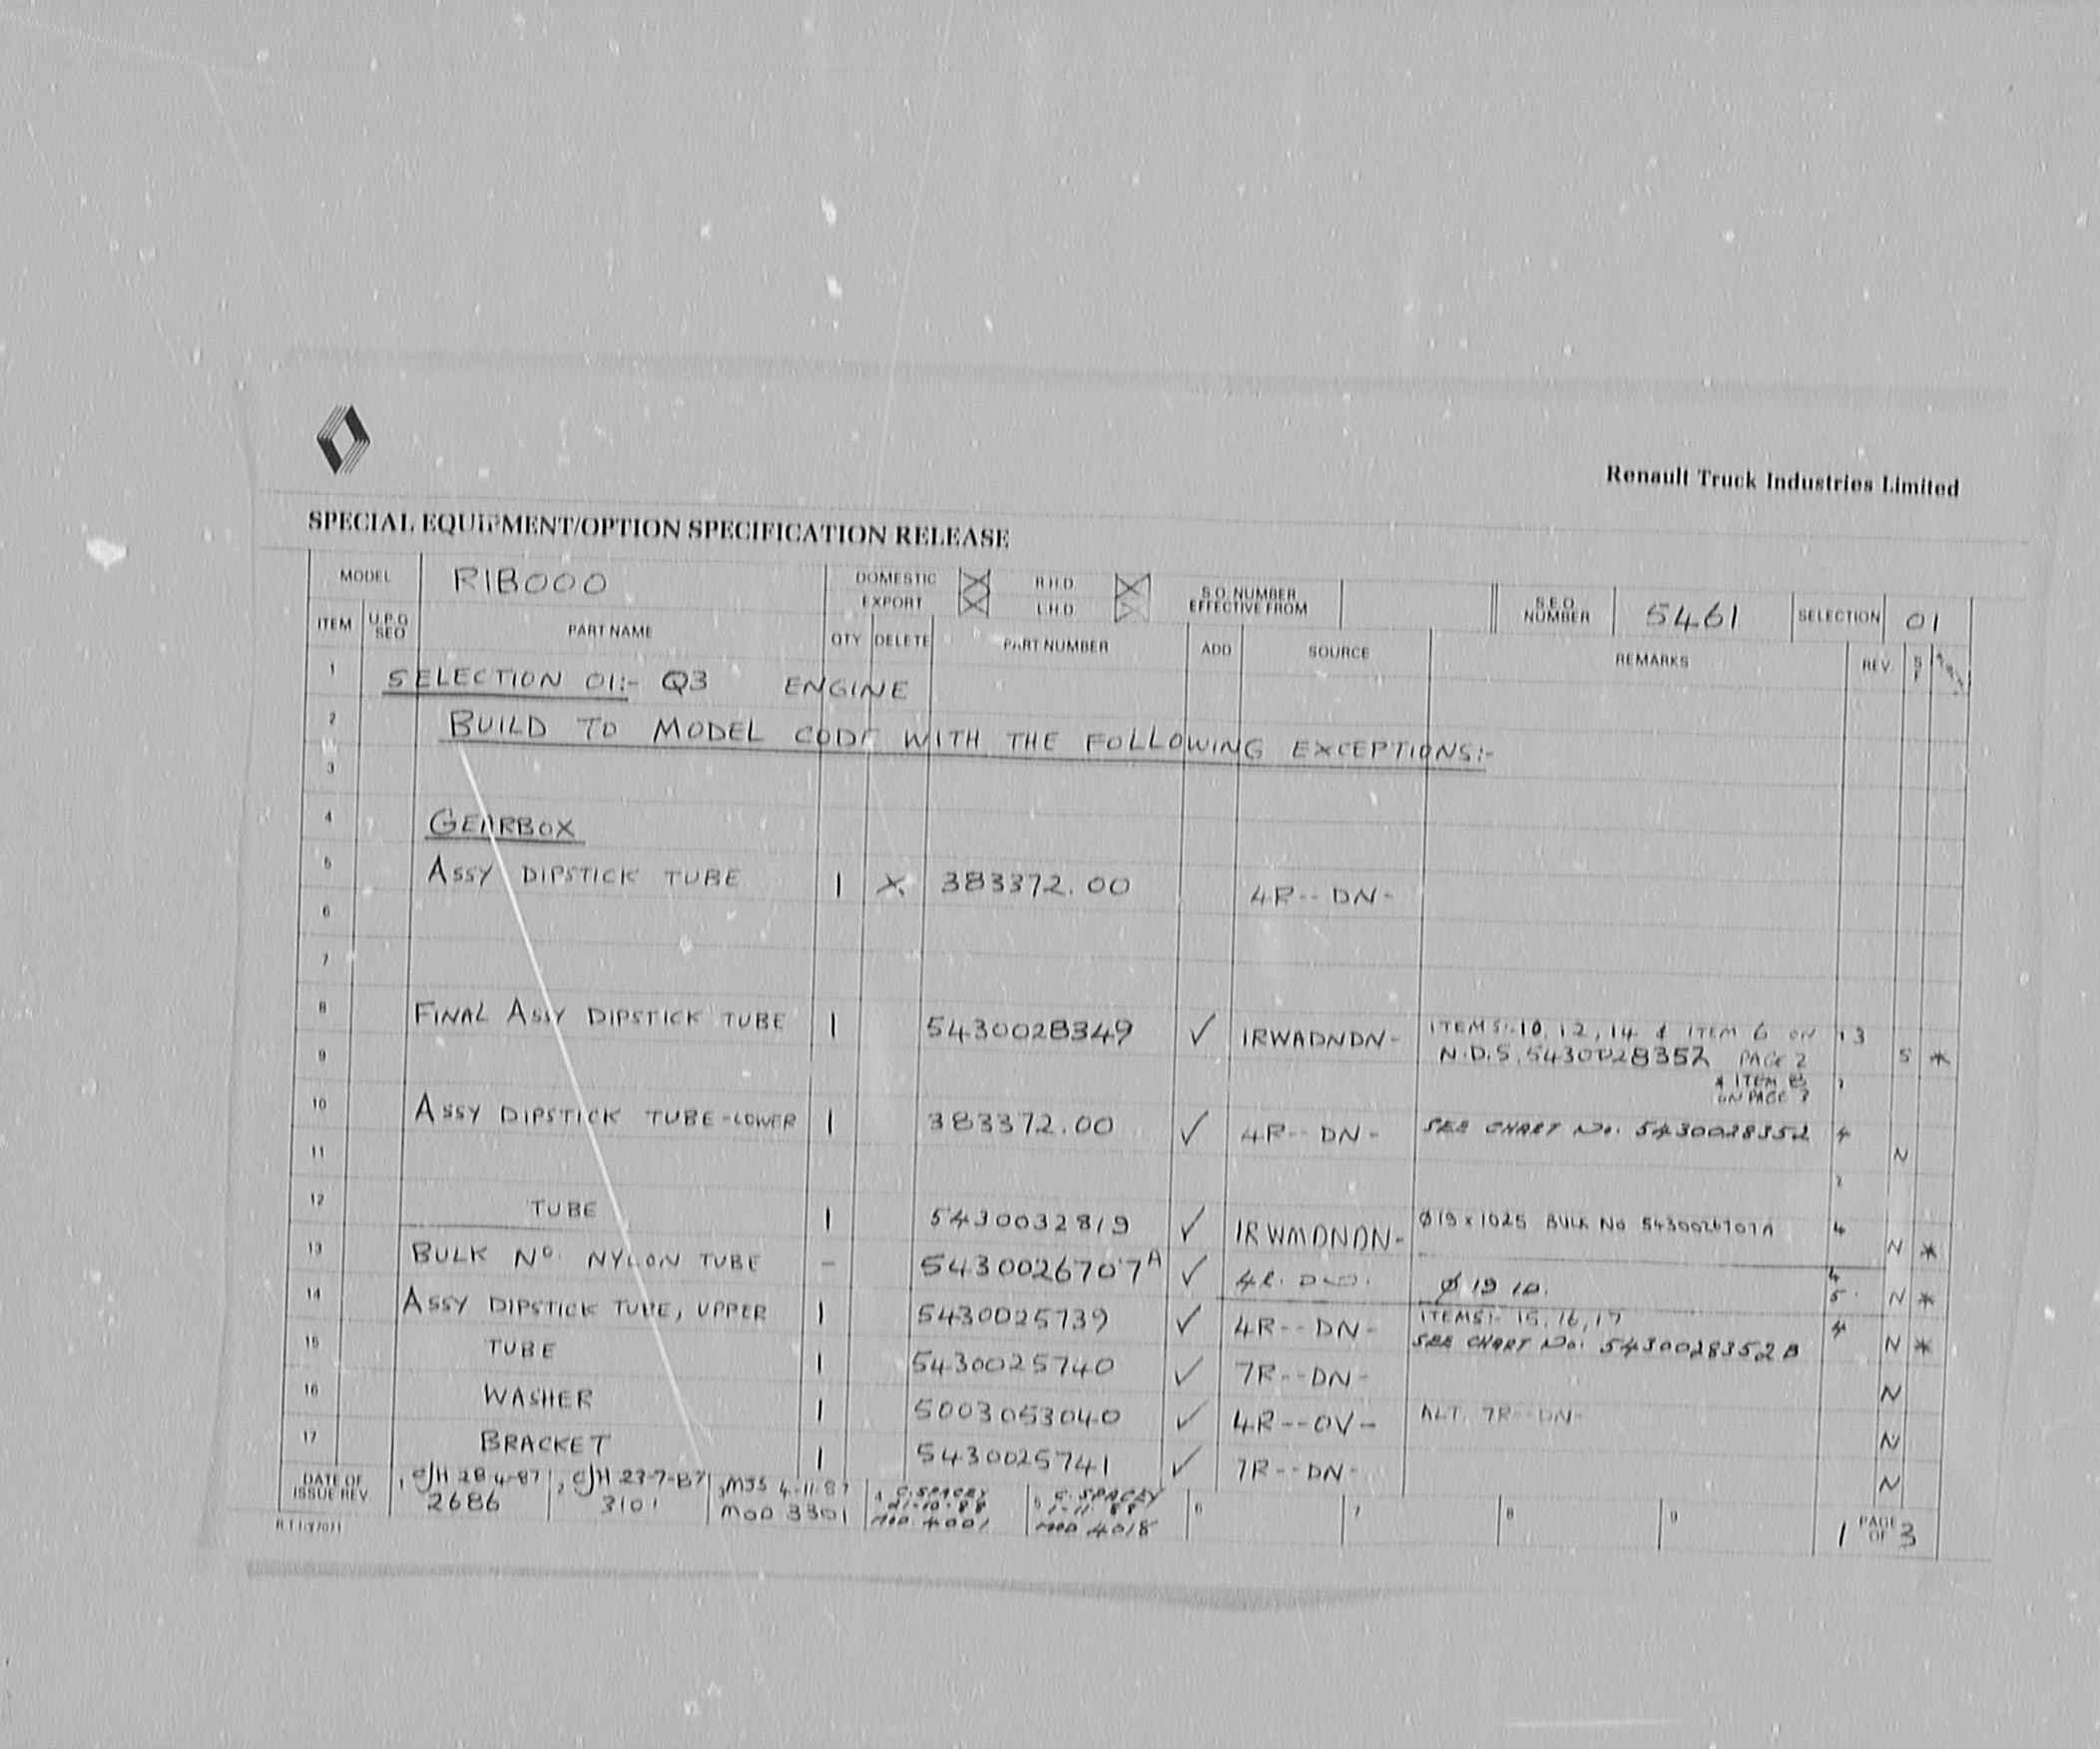 Renault Truck Industries Limited
SPECIAL EQUIPMENT/OPTION SPECIFICATION RELEASE
MODEL R1B000 DOMESTIC EXPORT R.H.D. L.H.D. S.O. NUMBER EFFECTIVE FROM S.E.O. NUMBER 5461 SELECTION 01
ITEM U.P.G SEQ PART NAME QTY DELETE PART NUMBER ADD SOURCE REMARKS REV
1 SELECTION 01:- Q3 ENGINE
2 BUILD TO MODEL CODE WITH THE FOLLOWING EXCEPTIONS:-
3
4 GEARBOX
5 ASSY DIPSTICK TUBE 1 X 383372.00 4R--DN-
6
7
8 FINAL ASSY DIPSTICK TUBE 1 5430028349 ✓ 1RWADNDN- ITEMS:-10, 12, 14 & ITEM 6 ON 1 3
9 N.D.S. 5430028352 PAGE 2 S *
& ITEM 8
ON PAGE
10 ASSY DIPSTICK TUBE-LOWER 1 383372.00 ✓ 4R--DN- SEE CHART No. 5430028352 4
11 N
12 TUBE 1 5430032819 ✓ 1RWMDNDN- Ø19 x 1025 BULK No 5430026707A 4 N *
13 BULK No. NYLON TUBE - 5430026707A ✓ Ø 19 10. 4 5 N *
14 ASSY DIPSTICK TUBE, UPPER 1 5430025739 ✓ 4R--DN- ITEMS:- 15, 16, 17 4
SEE CHART No. 5430028352B N *
15 TUBE 1 5430025740 ✓ 7R--DN- N
16 WASHER 1 5003053040 ✓ 4R--OV- ALT. 7R--DN- N
17 BRACKET 1 5430025741 ✓ 7R--DN- N
DATE OF ISSUE REV 1 CJH 28-4-87 2 CJH 23-7-87 3 MJS 4-11-87 4 C. SPACEY 21-10-88 5 C. SPACEY 1-11-88 6 7 8 9 1 PAGE OF 3
2686 3101 MOD 3301 MOD 4001 MOD 4018